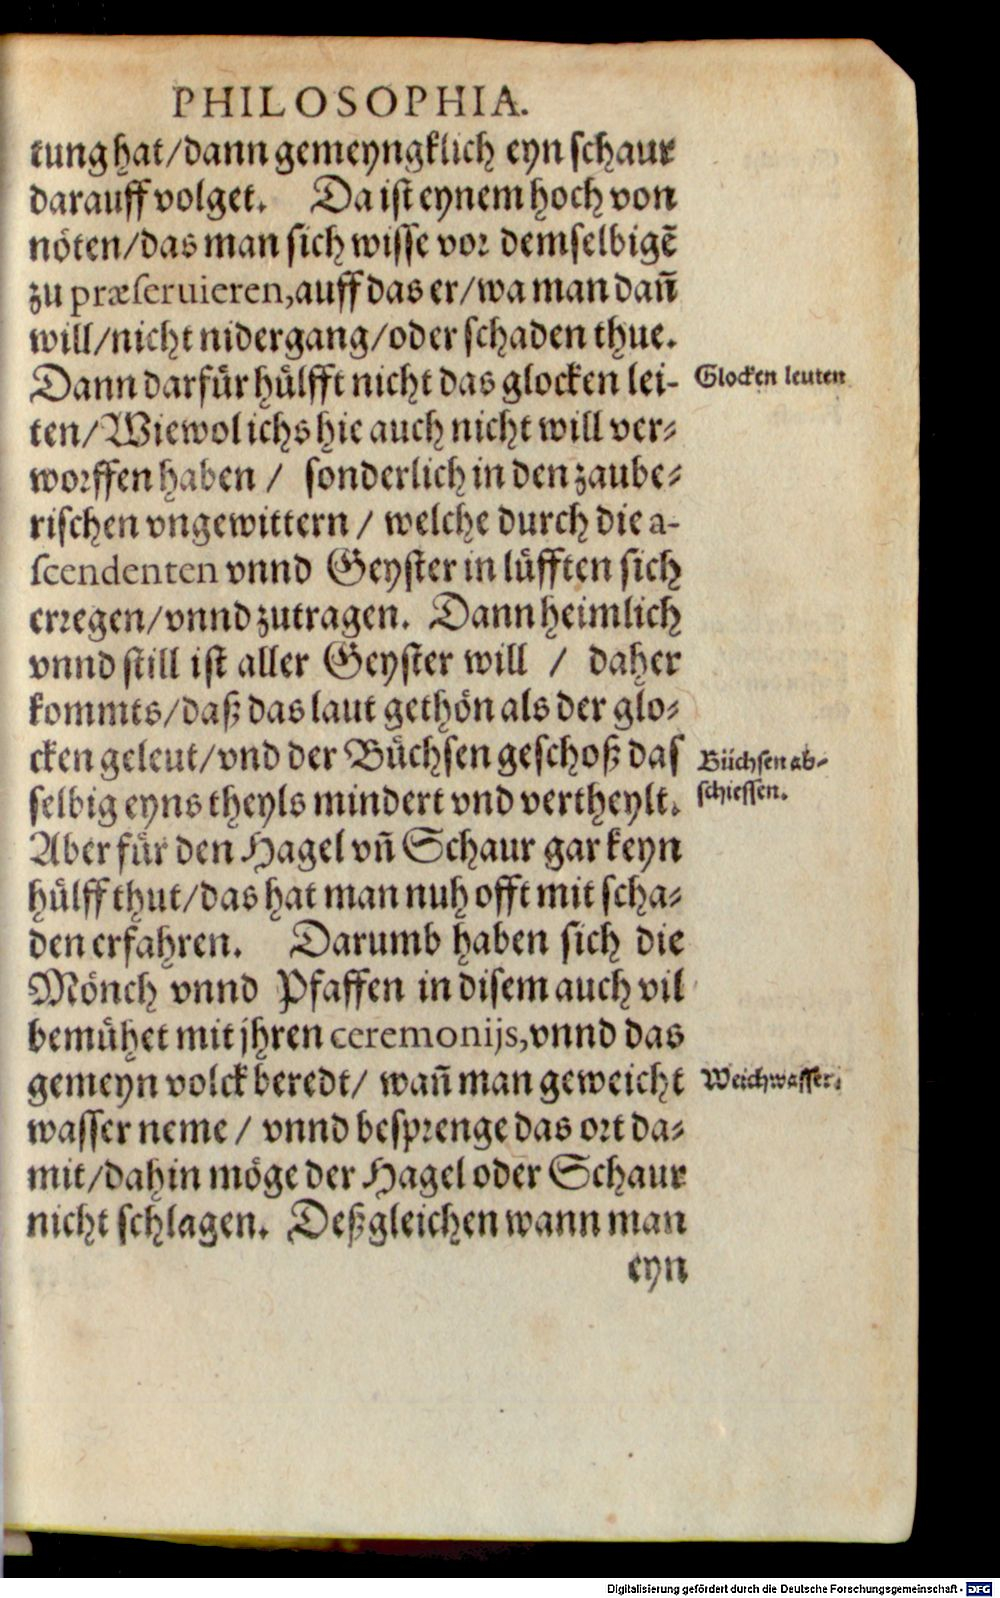 PHILOSOPHIA.
tung hat/dann gemeyngklich eyn schaur
darauff volget. Da ist eynem hoch von
nöten/das man sich wisse vor demselbigẽ
zu præseruieren,auff das er/wa man dañ
will/nicht nidergang/oder schaden thue.
Dann darfür hülfft nicht das glocken lei-
Glocken leuten
ten/Wiewol ichs hie auch nicht will ver-
worffen haben / sonderlich in den zaube-
rischen vngewittern / welche durch die a-
scendenten vnnd Geyster in lüfften sich
erregen/vnnd zutragen. Dann heimlich
vnnd still ist aller Geyster will / daher
kommts/daß das laut gethön als der glo-
cken geleut/vnd der Büchsen geschoß das
Büchsen ab-
schiessen.
selbig eyns theyls mindert vnd vertheylt.
Aber für den Hagel vñ Schaur gar keyn
hülff thut/das hat man nuh offt mit scha-
den erfahren. Darumb haben sich die
Mönch vnnd Pfaffen in disem auch vil
bemühet mit jhren ceremonijs,vnnd das
gemeyn volck beredt/ wañ man geweicht
Weichwasser.
wasser neme / vnnd besprenge das ort da-
mit/dahin möge der Hagel oder Schaur
nicht schlagen. Deßgleichen wann man
eyn
Digitalisierung gefördert durch die Deutsche Forschungsgemeinschaft - DFG